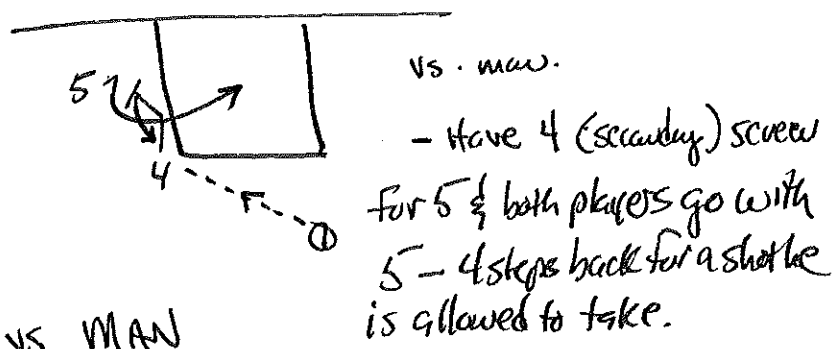 5
4
1
vs. man.
- Have 4 (secondary) screen
for 5 & both players go with
5 - 4 steps back for a shot he
is allowed to take.
VS MAN